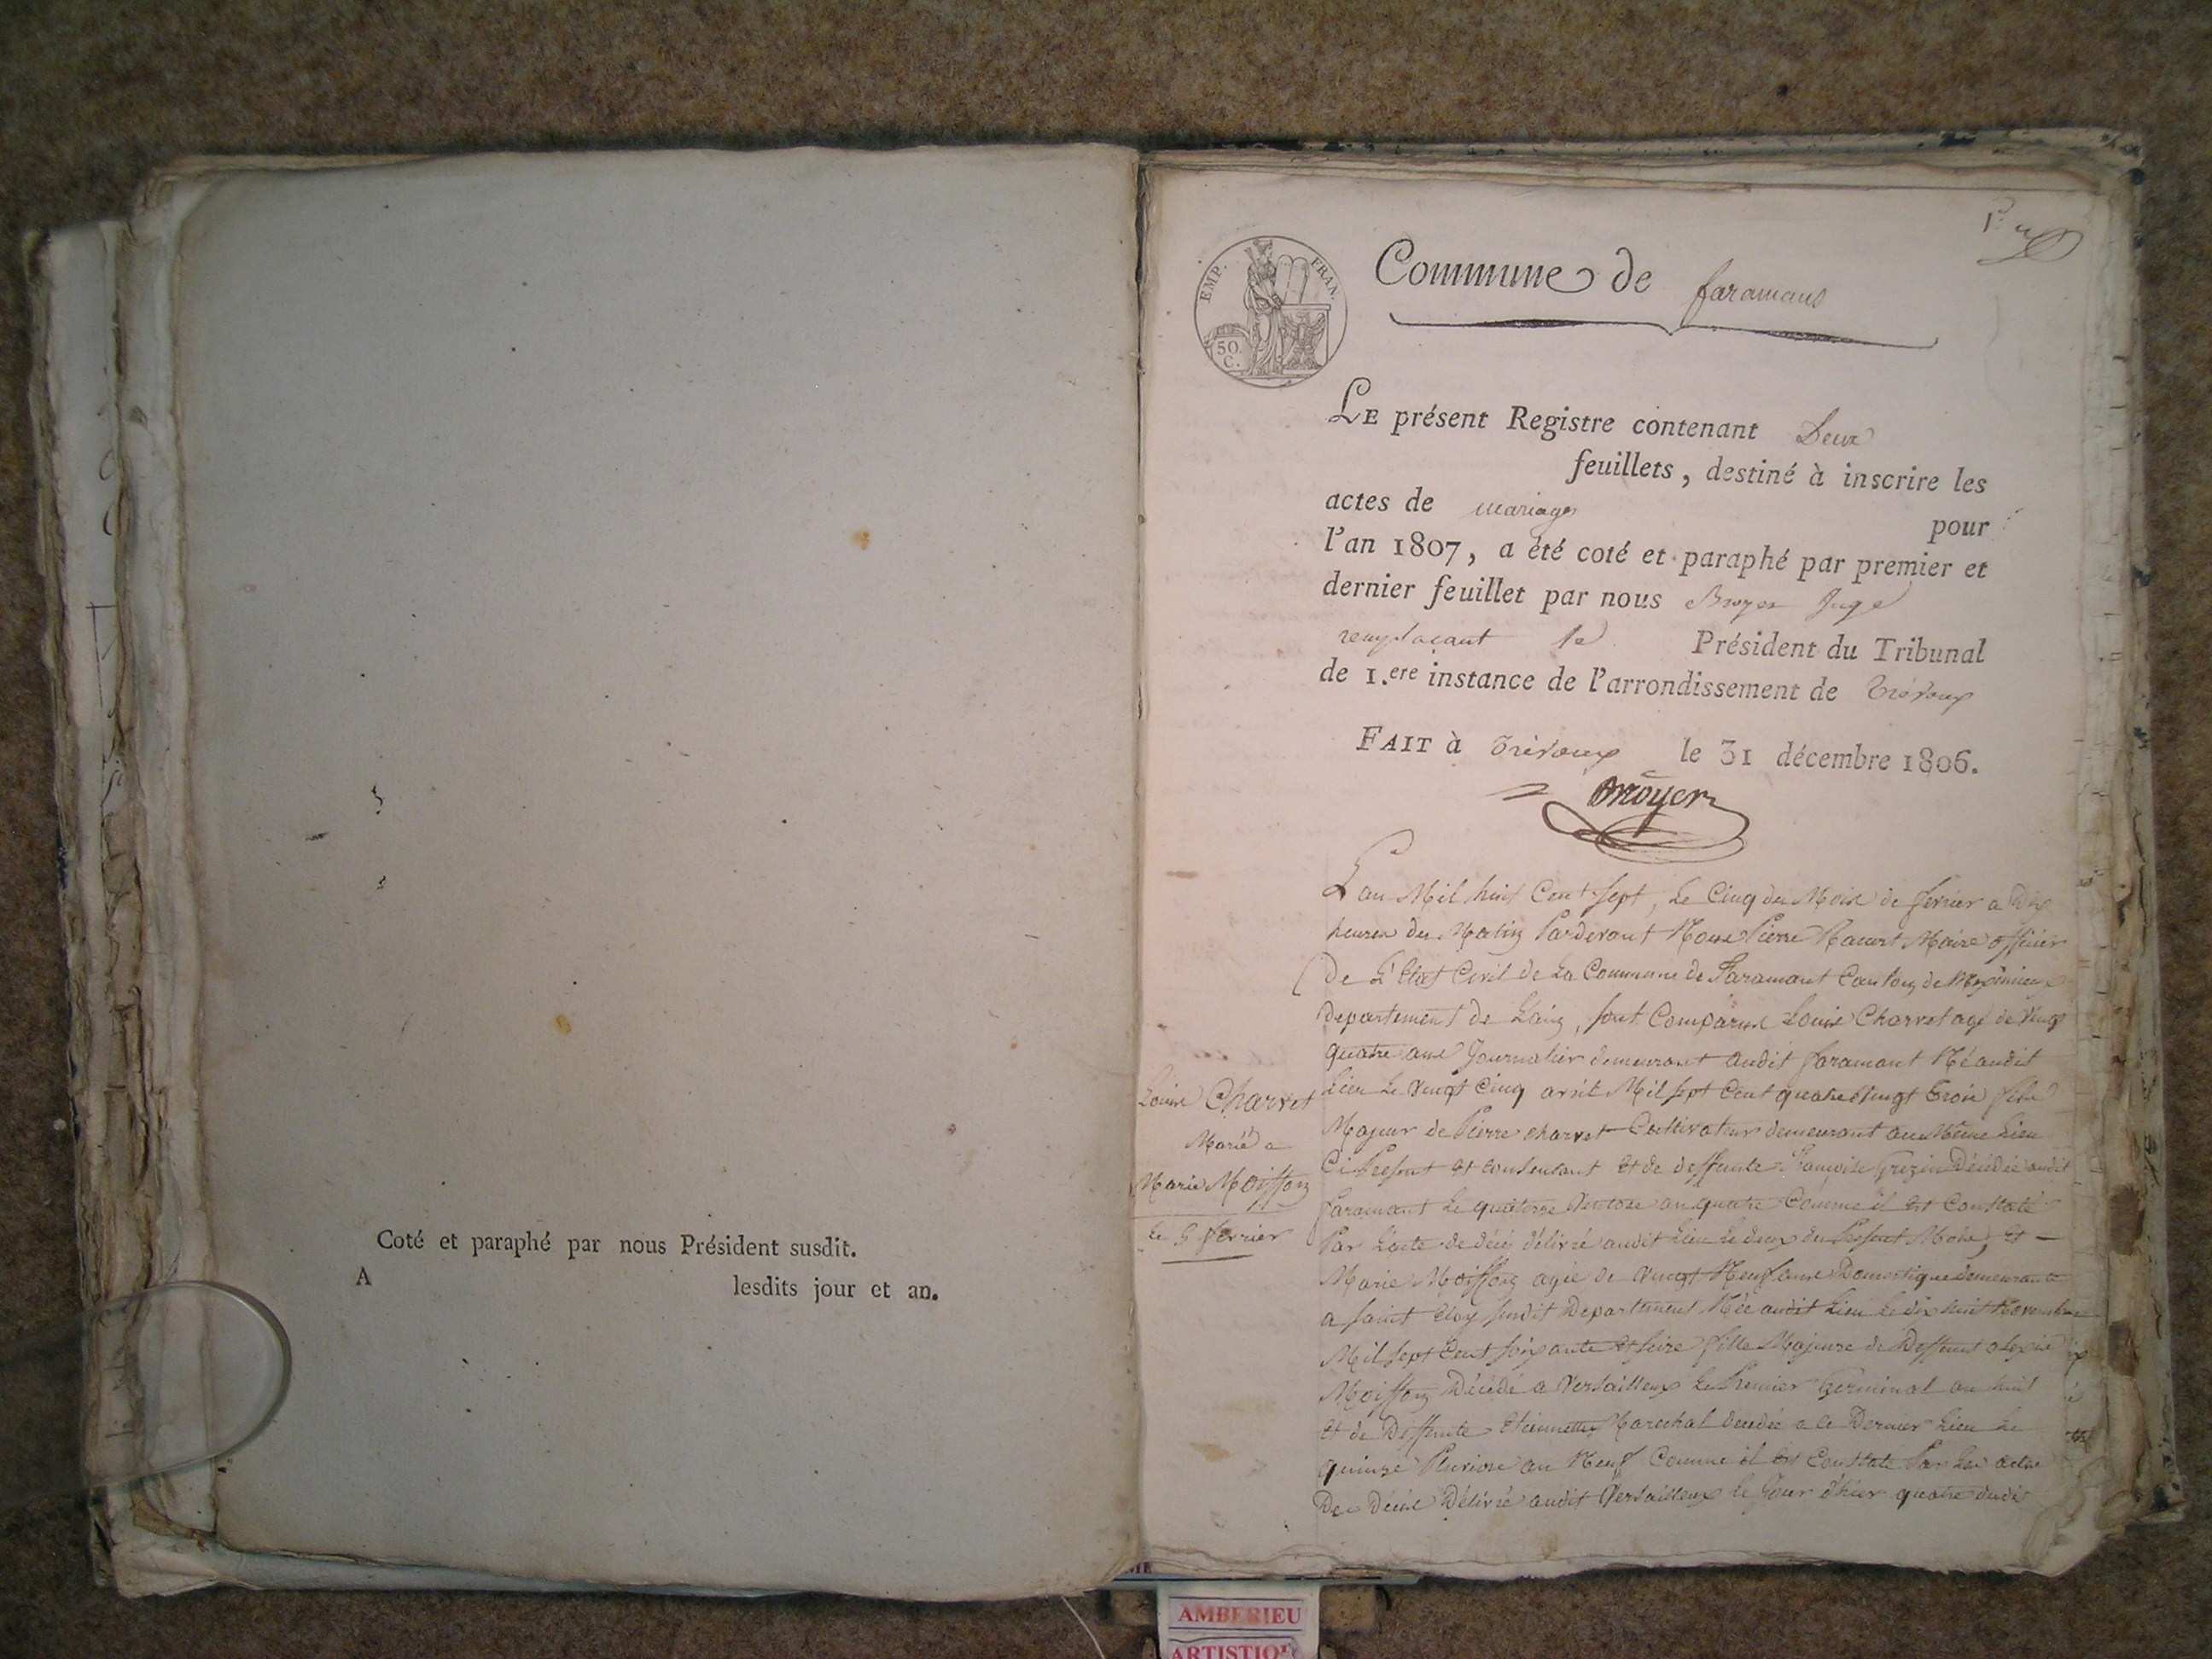 Coté et paraphé par nous Président susdit.
A lesdits jour et an.
EMP. FRAN.
50 C.
Commune de faramans
LE présent Registre contenant Deux
feuillets, destiné à inscrire les
actes de mariages pour
l'an 1807, a été coté et paraphé par premier et
dernier feuillet par nous Broyer Juge
remplaçant le Président du Tribunal
de 1.ere instance de l'arrondissement de Trévoux
FAIT à Trévoux le 31 décembre 1806.
Broyer
Louis Charvet
Marié a
Marie Moisson
Le 5 fevrier
L'an Mil huit Cent Sept, Le Cinq du Mois de fevrier a Dix
heures du Matin Pardevant Nous Pierre Maire officier
De L'Etat Civil de La Commune de Faramant Canton de Meximieux
departement de Lain, sont Comparus Louis Charvet agé de Vingt
quatre ans Journalier demeurant audit faramant Né audit
Lieu Le Vingt Cinq avril Mil sept Cent quatre Vingt Trois fils
Majeur de Pierre Charvet Cultivateur demeurant au Même Lieu
Ci Present et consentant et de deffunte Françoise Grezin Décédée audit
faramant Le quatorze Ventose an quatre Comme il est Constaté
Par L'acte de décé délivré audit Lieu Le deux du Present Mois, Et
Marie Moisson agée de Vingt Neuf ans Domestique demeurante
a Saint Eloy susdit Departement Née audit Lieu Le dix huit Novembre
Mil Sept Cent soixante et seize fille Majeure de Deffunt alexis
Moisson Décédé a Versailleux Le Premier Germinal an huit
et de Deffunte Etiennette Marechal decedée a ce Dernier Lieu Le
quinze Pluviose an Neuf Comme il est Constaté Par Les actes
De Décés Délivré audit Versailleux Le Jour d'hier quatre dudit
AMBERIEU